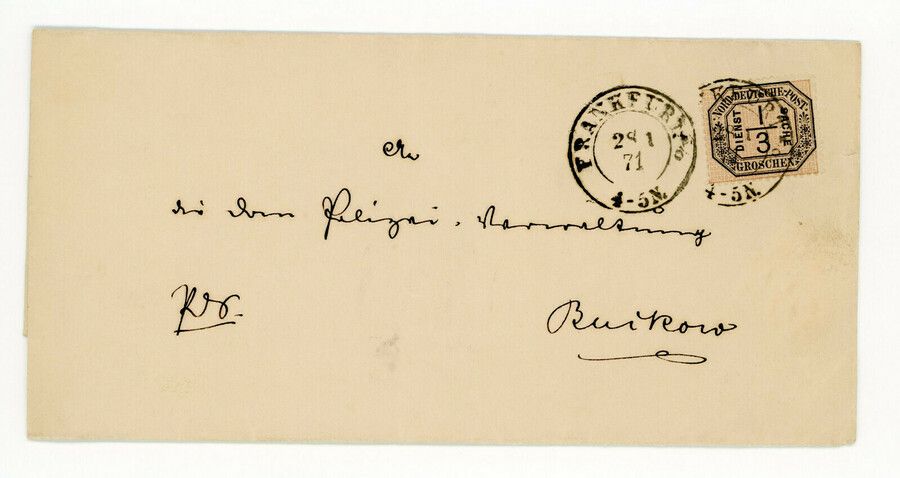 FRANKFURT a/O
28 1
71
4-5N.
NORD-DEUTSCHE-POST.
DIENST SACHE
1/3
GROSCHEN
4-5N.
An
die Dom Polizei-Verwaltung
Buckow